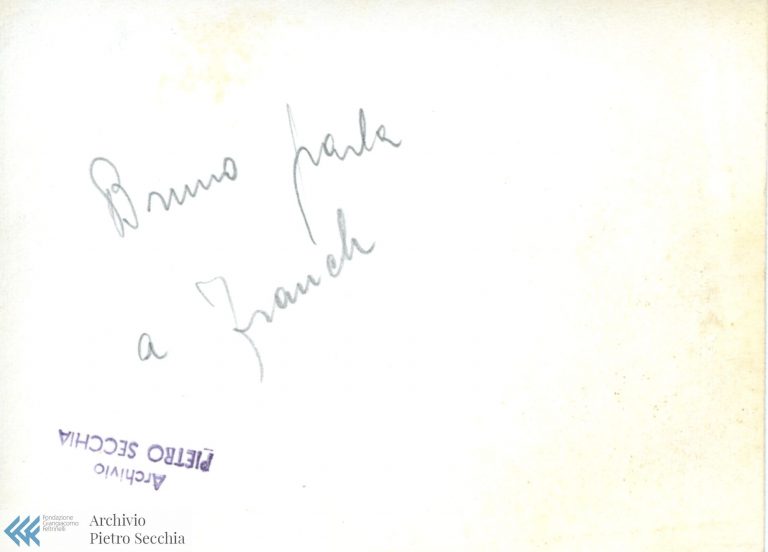 Bruno parla
a Franch
Archivio
PIETRO SECCHIA
Fondazione
Giangiacomo
Feltrinelli
Archivio
Pietro Secchia